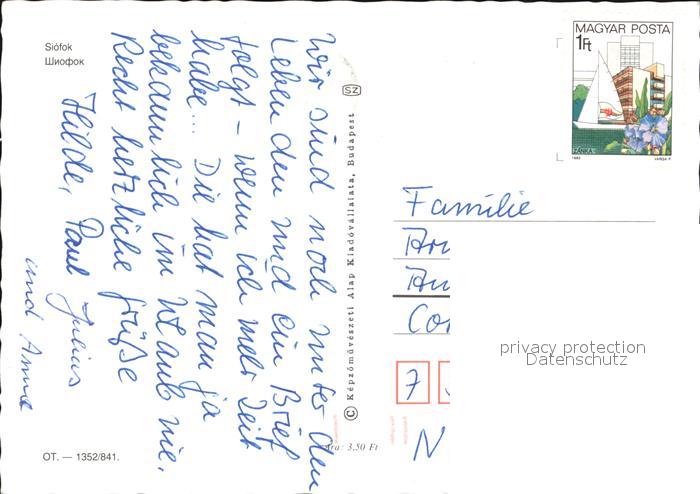 Siófok
Шиофок
Wir sind noch unter den
Lebenden und ein Brief
folgt – wenn ich mehr Zeit
habe... Die hat man ja
bekanntlich im Urlaub nie.
Recht herzliche Grüße
Hilde, Paul Julius
und Anna
OT. — 1352/841.
SZ
© Képzőművészeti Alap Kiadóvállalata, Budapest
Ára: 3.50 Ft
MAGYAR POSTA
1Ft
ZÁNKA
1983
VARGA P.
Familie
7
N
privacy protection
Datenschutz